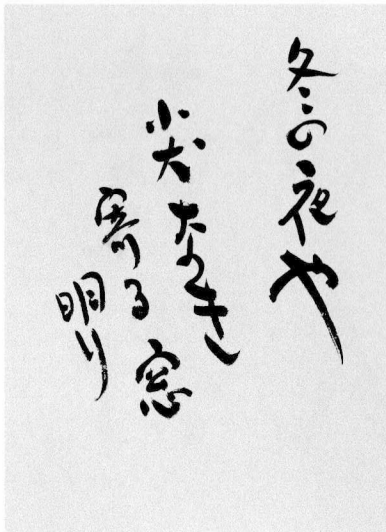 冬の夜や
小犬なき
寄る窓
明り